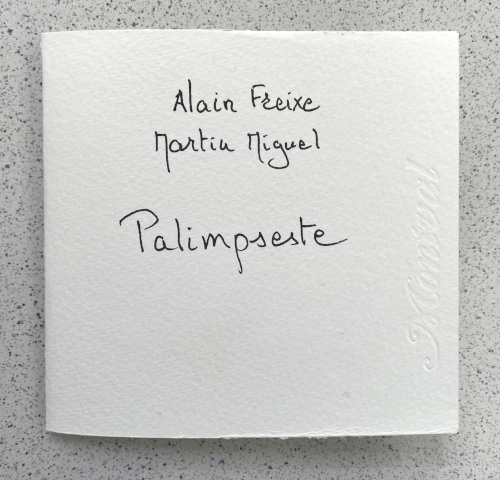 Alain Freixe
Martin Miguel
Palimpseste
Minéval